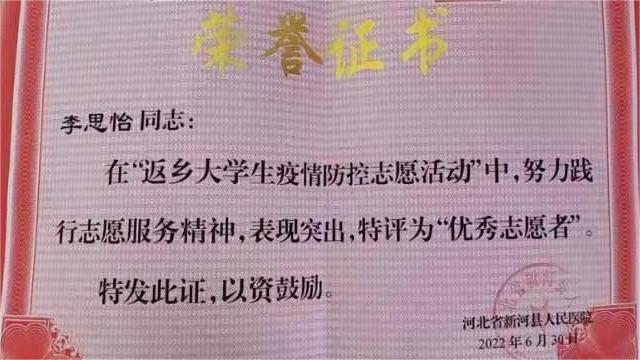 荣誉证书
李思怡同志:
在“返乡大学生疫情防控志愿活动”中,努力践
行志愿服务精神,表现突出,特评为“优秀志愿者”。
特发此证,以资鼓励。
河北省新河县人民医院
2022年6月30日